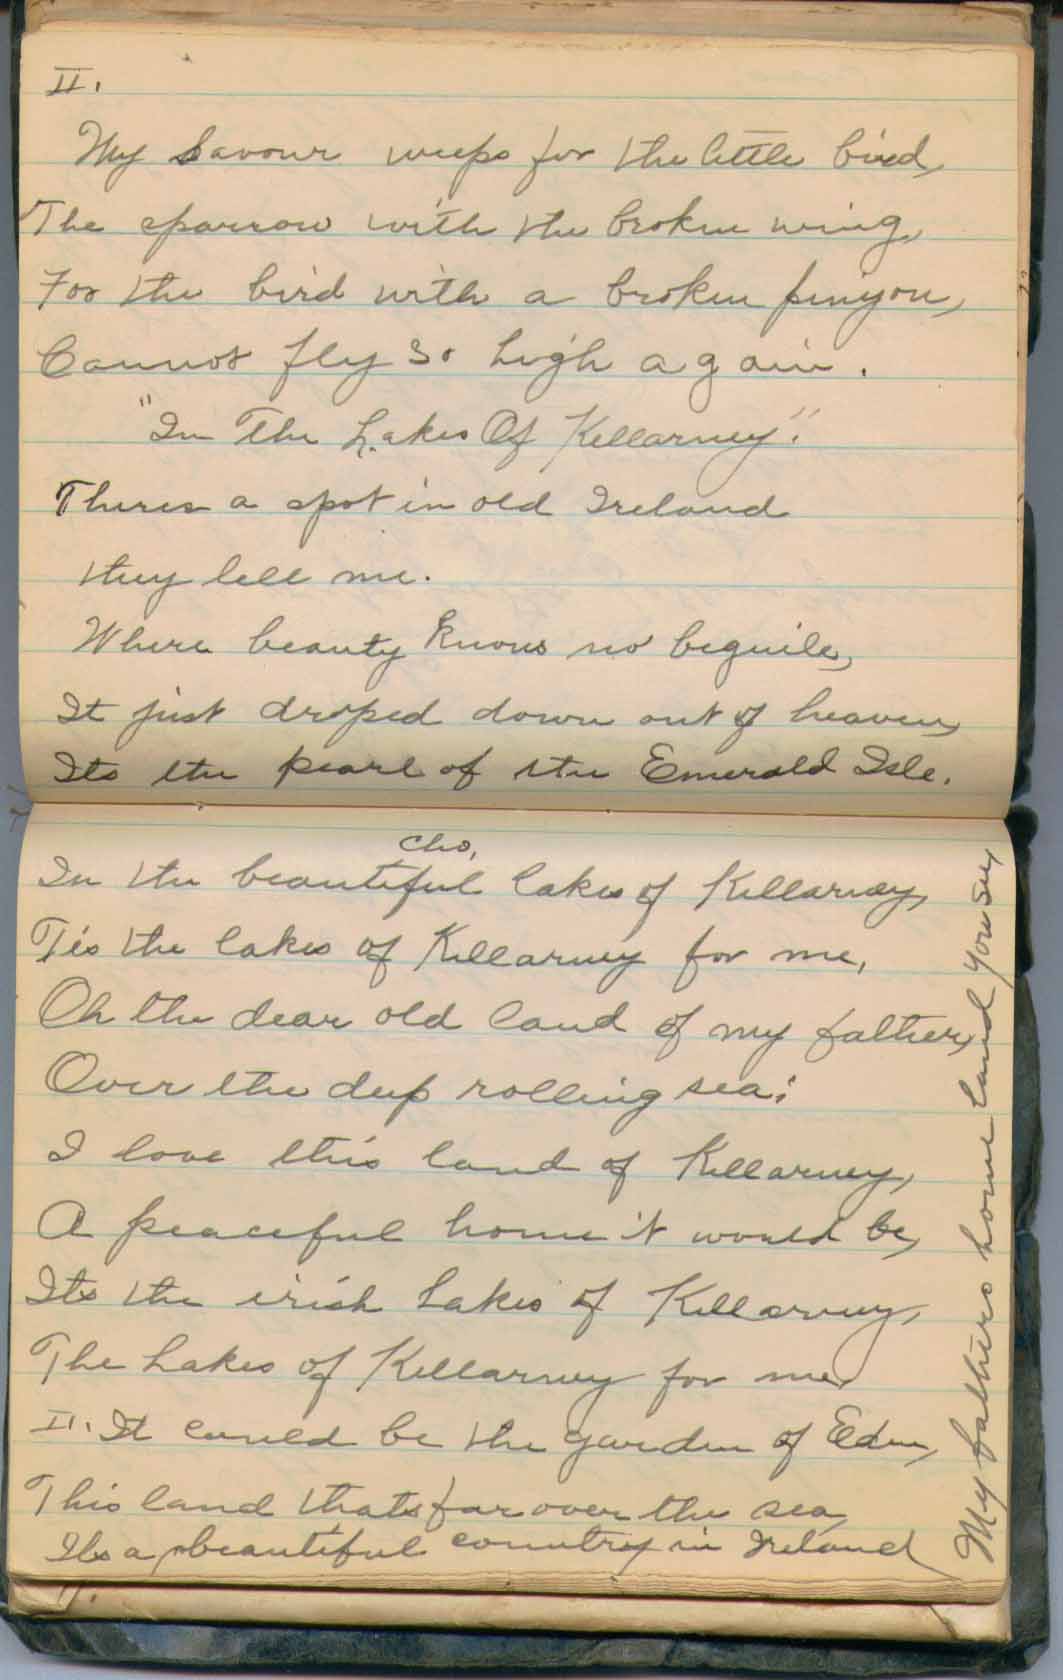 II.
My Savour weeps for the little bird,
The sparrow with the broken wing,
For the bird with a broken pinyon,
Cannot fly so high again.
"In The Lakes Of Killarney".
Theres a spot in old Ireland
they tell me.
Where beauty knows no beguile,
It just droped down out of heaven,
Its the pearl of the Emerald Isle.
Cho,
In the beautiful lakes of Killarney,
Tis the lakes of Killarney for me,
Oh the dear old land of my father,
Over the deep rolling sea;
I love this land of Killarney,
A peaceful home it would be,
Its the irish Lakes of Killarney,
The Lakes of Killarney for me,
II. It could be the garden of Eden,
This land thats far over the sea,
Its a beautiful country in Ireland
My fathers home land you see,